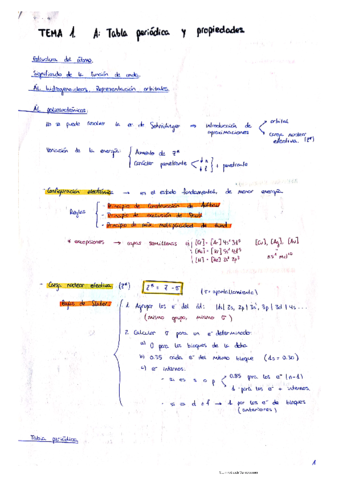 TEMA 1 A: Tabla periódica y propiedades
Estructura del átomo.
Significado de la función de onda.
Ác hidrogenoideos. Representación orbitales.
Ác polielectrónicos.
no se puede resolver la ec de Schrödinger → introducción de aproximaciones
orbital
carga nuclear efectiva (Z*)
Variación de la energía
Aumento de Z*
Carácter penetrante
+ penetrante
Configuración electrónica → es el estado fundamental, de menor energía
Reglas
- Principio de construcción de Aufbau
- Principio de exclusión de Pauli
- Principio de máx multiplicidad de Hund
* excepciones → capas semillenas
[Cr], [Ag], [Au]
- Carga nuclear efectiva (Z*)
Z* = Z - σ
(σ = apantallamiento)
Reglas de Slater
1. Agrupar los e⁻ del át: |1s| 2s, 2p | 3s, 3p | 3d | 4s ...
(mismo grupo, mismo σ)
2. Calcular σ para un e⁻ determinado
a) 0 para los bloques de la dcha
b) 0.35 cada e⁻ del mismo bloque (1s = 0.30)
c) e⁻ internos:
- si es s o p
0.85 para los e⁻ (n-1)
1 para los e⁻ + internos.
- si es d o f → 1 por los e⁻ de bloques (anteriores)
Tabla periódica.
1